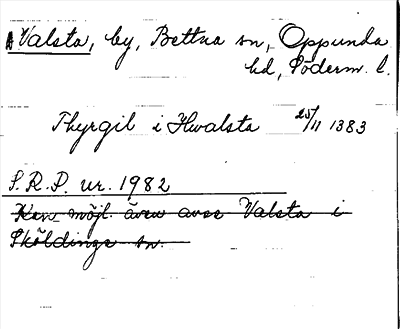 Valsta, by, Bettna sn, Oppunda
hd, Söderm. l.
Thyrgil i Hwalsta 25/11 1383
S.R.P. nr. 1982
Kan möjl. även avse Valsta i
Sköldinge sn.